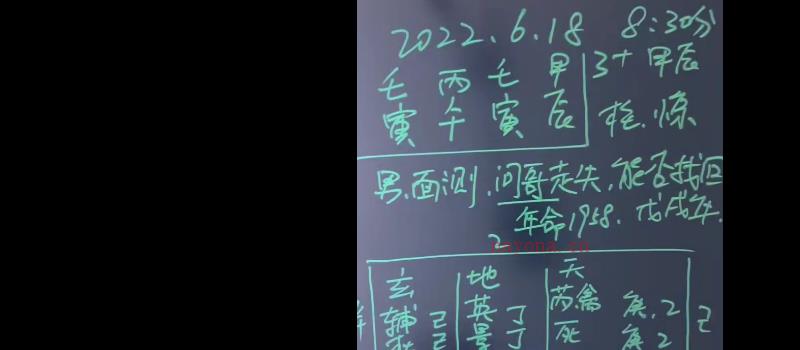 2022.6.18 8:30分
壬 丙 壬 甲 3+ 甲辰
寅 午 寅 辰 柱.惊
男.面测.问哥走失.能否找回
年命1958.戊戌年.
nayona.cn
玄 地 天
辅 己 英 丁 芮禽 庚.2 己
己 景 丁 死 庚 2